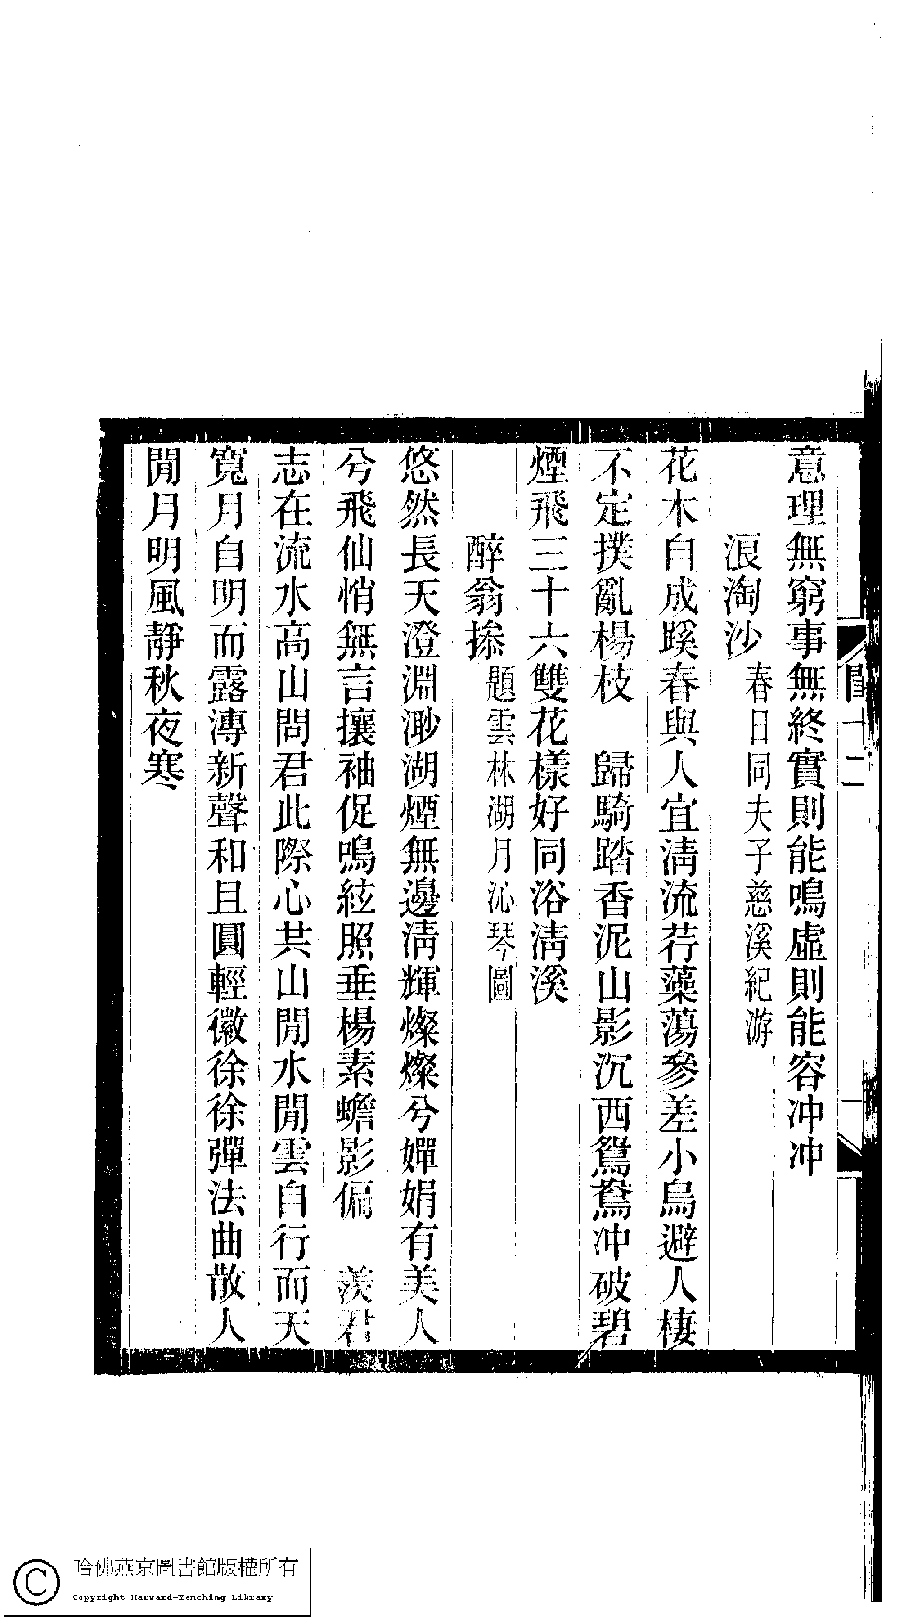 意理無窮事無終實則能鳴虛則能容冲冲
浪淘沙 春日同夫子慈溪紀游
花木自成蹊春與人宜清流荇藻蕩參差小鳥避人棲
不定撲亂楊枝　歸騎踏香泥山影沉西鴛鴦冲破碧
煙飛三十六雙花樣好同浴清溪
醉翁操 題雲林湖月沁琴圖
悠然長天澄淵渺湖煙無邊清輝燦燦兮嬋娟有美人
兮飛仙悄無言攘袖促鳴絃照垂楊素蟾影偏　羨君
志在流水高山問君此際心共山閒水閒雲自行而天
寬月自明而露漙新聲和且圓輕徽徐徐彈法曲散人
閒月明風靜秋夜寒
十二
哈佛燕京圖書館版權所有
Copyright Harvard-Yenching Library